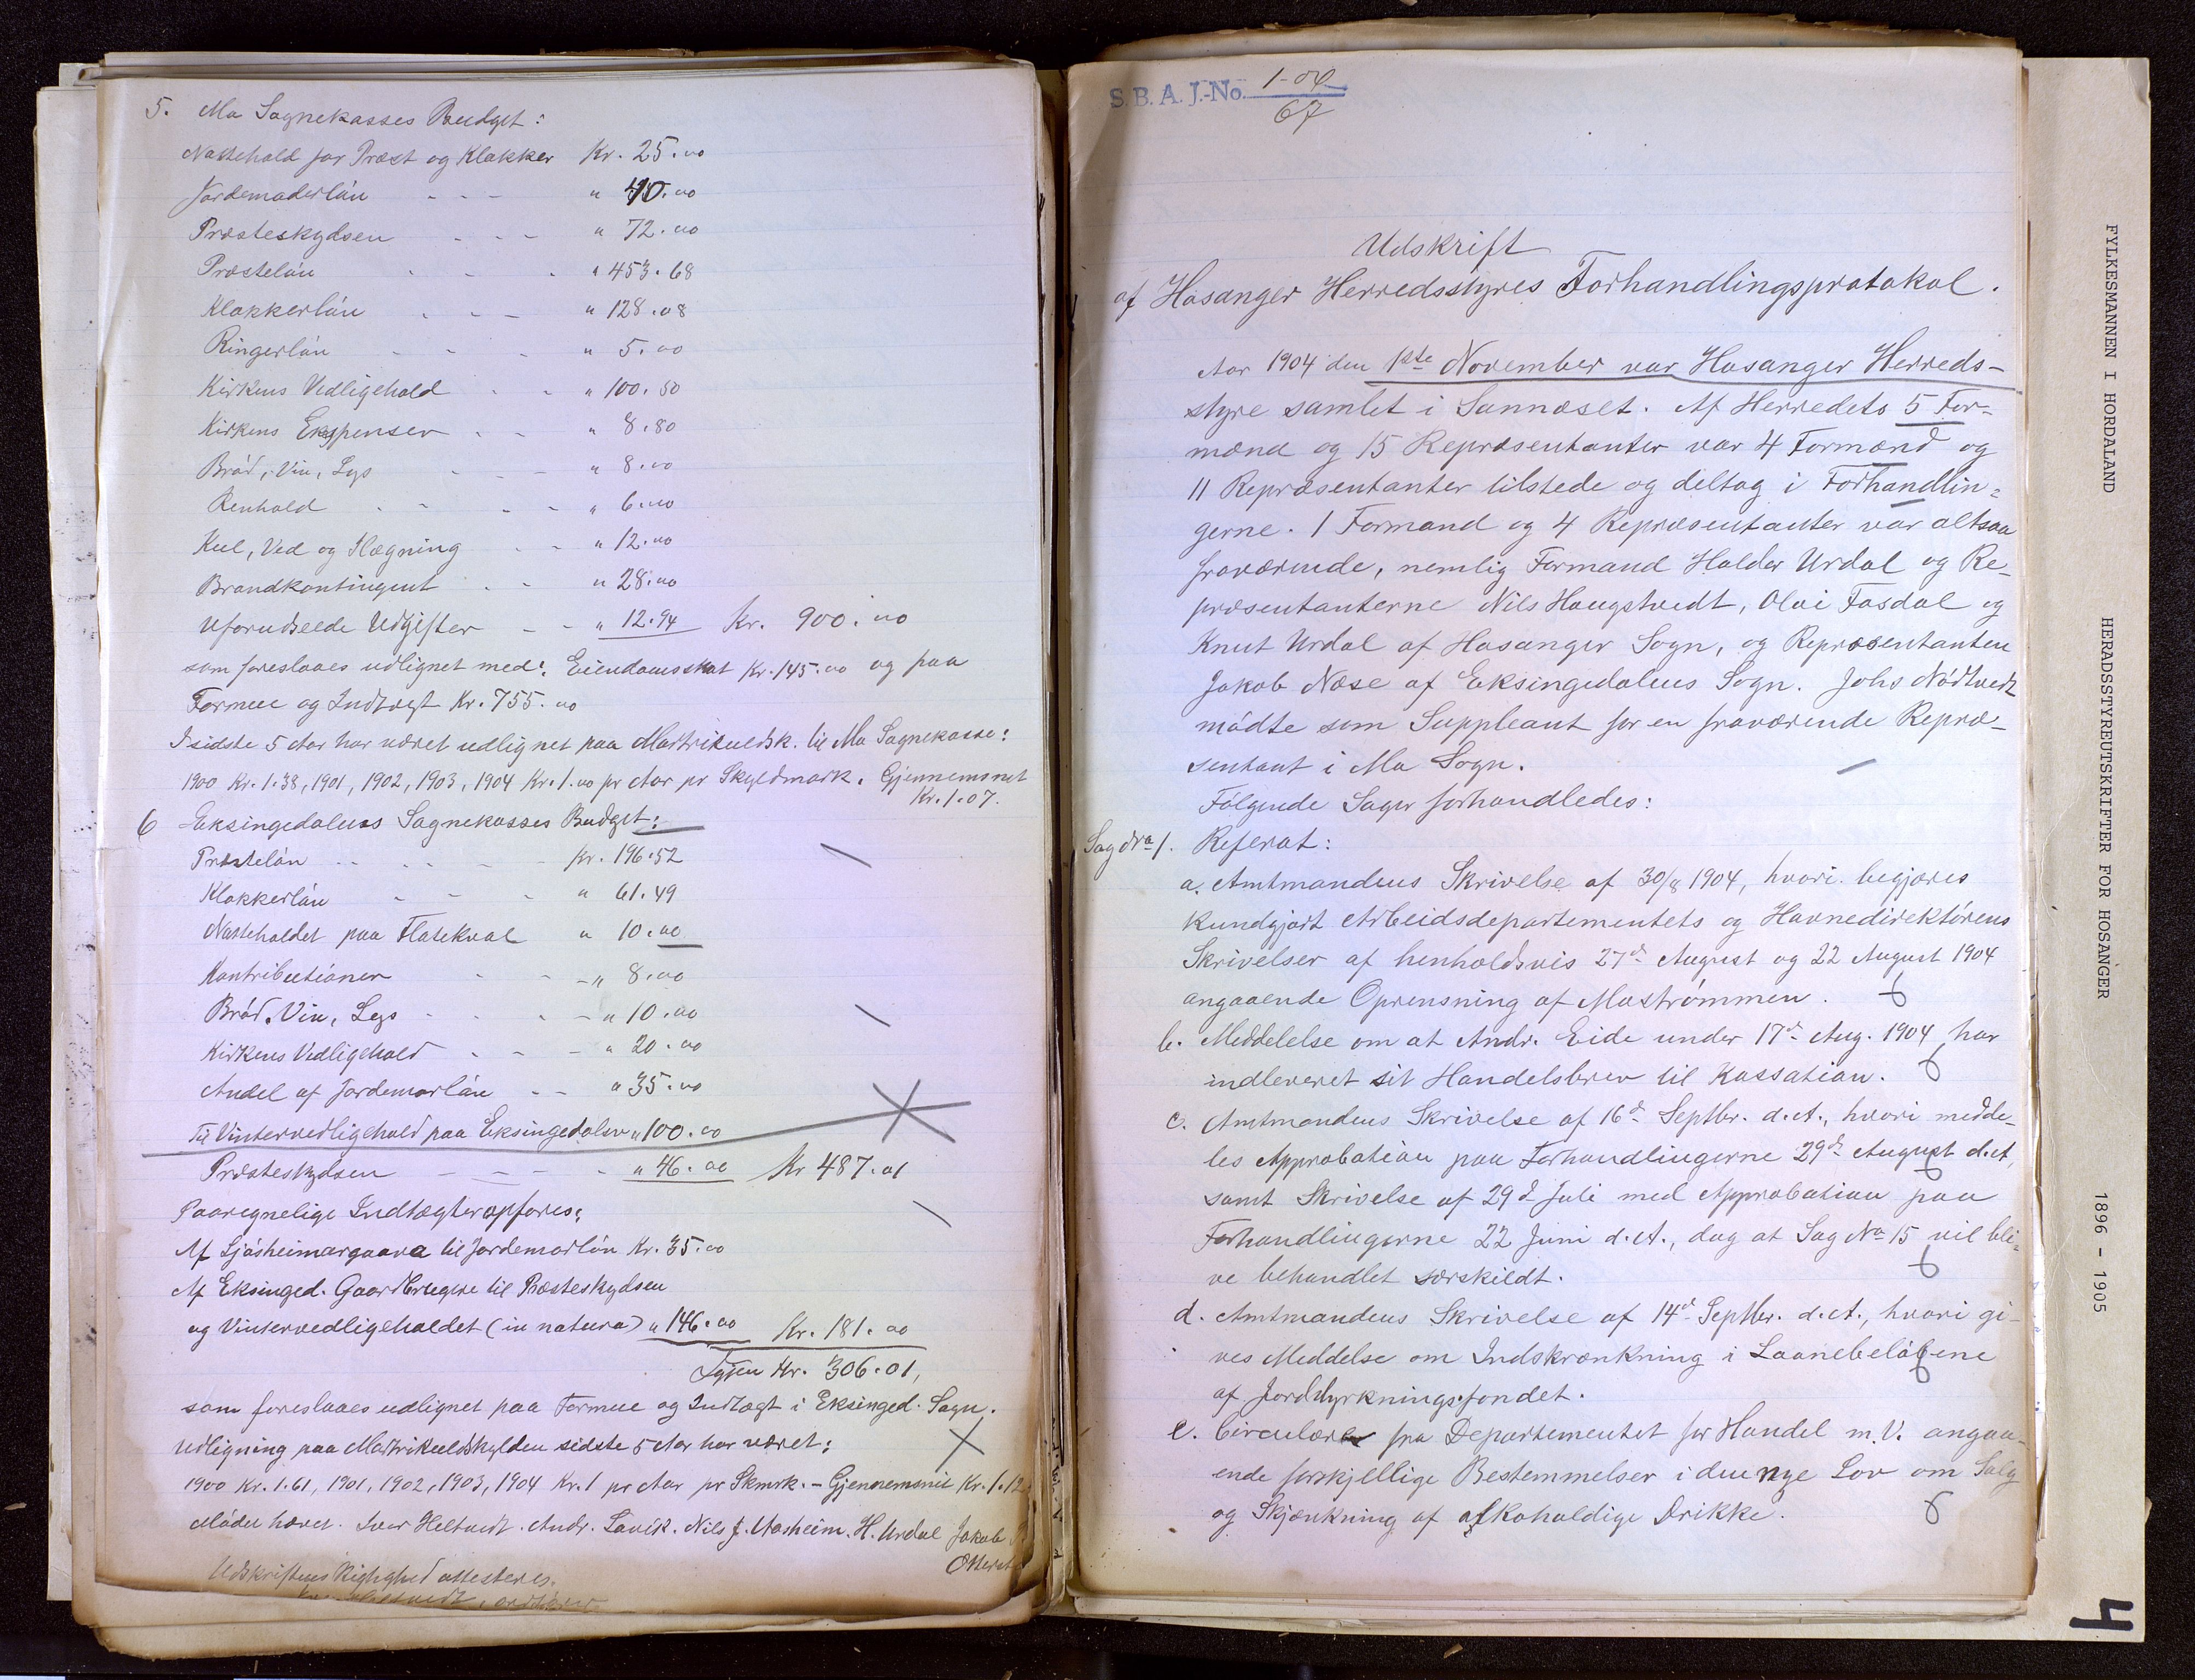 5. Mo Sognekasses Budget:
Nattehold for Præst og Klokker Kr. 25.00
Jordemoderløn - - - " 40.00
Præsteskydsen - - - " 72.00
Præsteløn - - - " 453.68
Klokkerløn - - - " 128.08
Ringerløn - - - " 5.00
Kirkens Vedligehold - - " 100.50
Kirkens Expenser - - " 8.80
Brød, Vin, Lys - - " 8.00
Renhold - - - - " 6.00
Kul, Ved og Lægning - - " 12.00
Brandkontingent - - " 28.00
Uforudseede Udgifter - - " 12.94 Kr. 900.00
som foreslaaes udlignet med: Eiendomsskat Kr. 145.00 og paa
Formue og Indtægt Kr. 755.00
I sidste 5 Aar har været udlignet paa Matrikulsk. til Mo Sognekasse:
1900 Kr. 1.38, 1901, 1902, 1903, 1904 Kr. 1.00 pr Aar pr Skyldmark. Gjennemsnit
Kr. 1.07.
6 Eksingedalens Sognekasses Budget:
Præsteløn - - - - Kr. 196.52
Klokkerløn - - - " 61.49
Natteholdet paa Flatekval " 10.00
Kontributioner - - - " 8.00
Brød, Vin, Lys - - - " 10.00
Kirkens Vedligehold - - - " 20.00
Andel af Jordemorløn - - " 35.00
Til Vintervedligehold paa Eksingedalsv " 100.00
Præsteskydsen - - - - " 46.00 Kr 487.01
Paaregnelige Indtægter opføres:
Af Sjøsheimargaara til Jordemorløn Kr. 35.00
Af Eksinged. Gaardbrugere til Præsteskydsen
og Vintervedligeholdet (in natura) " 146.00 Kr. 181.00
Igjen Kr. 306.01,
som foreslaaes udlignet paa Formue og Indtægt i Eksinged. Sogn.
Udligning paa Matrikulskylden sidste 5 Aar har været:
1900 Kr. 1.61, 1901, 1902, 1903, 1904 Kr. 1 pr Aar pr Skmrk. - Gjennemsnit Kr. 1.12
Mødet hævet. Iver Heltvedt. Andr. Lavik. Nils J. Aasheim. H. Urdal Jakob
Otterst
Udskriftens Rigtighed attesteres.
ordfører
S. B. A. J.-No. 1-04
67
Udskrift
af Hosanger Herredsstyres Forhandlingsprotokol.
Aar 1904 den 1ste November var Hosanger Herreds-
styre samlet i Sannæset. Af Herredets 5 For-
mænd og 15 Repræsentanter var 4 Formænd og
11 Repræsentanter tilstede og deltog i Forhandlin=
gerne. 1 Formand og 4 Repræsentanter var altsaa
fraværende, nemlig Formand Haldor Urdal og Re-
præsentanterne Nils Haugstvedt, Olai Fosdal og
Knut Urdal af Hosanger Sogn, og Repræsentanten
Jakob Næse af Eksingedalens Sogn. Johs Nødtvedt
mødte som Suppleant for en fraværende Repræ-
sentant i Mo Sogn.
Følgende Sager forhandledes:
Sag No 1. Referat:
a. Amtmandens Skrivelse af 30/8 1904, hvori begjæres
kundgjort Arbeidsdepartementets og Havnedirektørens
Skrivelser af henholdsvis 27d August og 22 August 1904
angaaende Oprensning af Mostrømmen.
b. Meddelelse om at Andr. Eide under 17d Aug. 1904 har
indleveret sit Handelsbrev til Kassation.
c. Amtmandens Skrivelse af 16d Septbr. d.A., hvori medde-
les Approbation paa Forhandlingerne 29d August d.A,
samt Skrivelse af 29d Juli med Approbation paa
Forhandlingerne 22 Juni d.A., dog at Sag No 15 vil bli=
ve behandlet særskildt.
d. Amtmandens Skrivelse af 14d Septbr. d.A., hvori gi-
ves Meddelse om Indskrænkning i Laanebeløbene
af Jorddyrkningsfondet.
e. Circulære fra Departementet for Handel m.V. angaa-
ende forskjellige Bestemmelser i den nye Lov om Salg
og Skjænkning af alkoholdige Drikke.
FYLKESMANNEN I HORDALAND HERADSSTYREUTSKRIFTER FOR HOSANGER 1896 - 1905
4